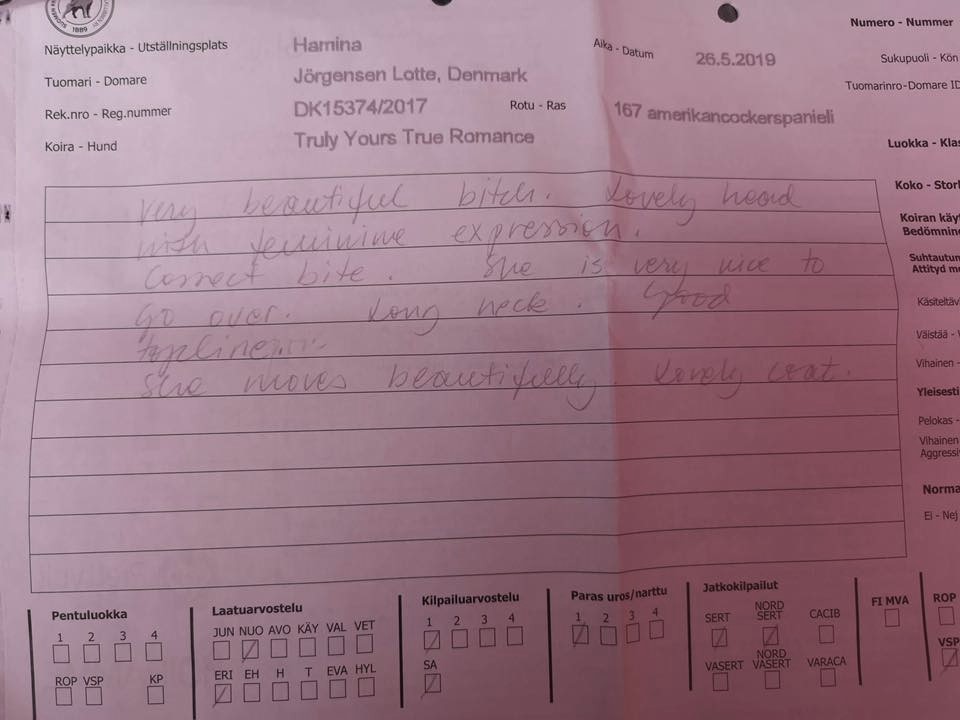 1889
Numero - Nummer
Näyttelypaikka - Utställningsplats Hamina Aika - Datum 26.5.2019 Sukupuoli - Kön
Tuomari - Domare Jörgensen Lotte, Denmark Tuomarinro-Domare ID
Rek.nro - Reg.nummer DK15374/2017 Rotu - Ras 167 amerikancockerspanieli
Koira - Hund Truly Yours True Romance Luokka - Klas
Koko - Storl
Koiran käyt
Bedömnine
Suhtautum
Attityd me
Käsiteltäv
Väistää - V
Vihainen -
Yleisesti
Pelokas -
Vihainen
Aggressi
Norma
Ei - Nej
very beautiful bitch. Lovely head
with feminine expression.
Correct bite. She is very nice to
go over. Long neck. Good
topline
She moves beautifully. Lovely coat.
Pentuluokka
1 2 3 4
ROP VSP KP
Laatuarvostelu
JUN NUO AVO KÄY VAL VET
ERI EH H T EVA HYL
Kilpailuarvostelu
1 2 3 4
SA
Paras uros/narttu
1 2 3 4
Jatkokilpailut
SERT NORD SERT CACIB
VASERT NORD VASERT VARACA
FI MVA
ROP
VSP